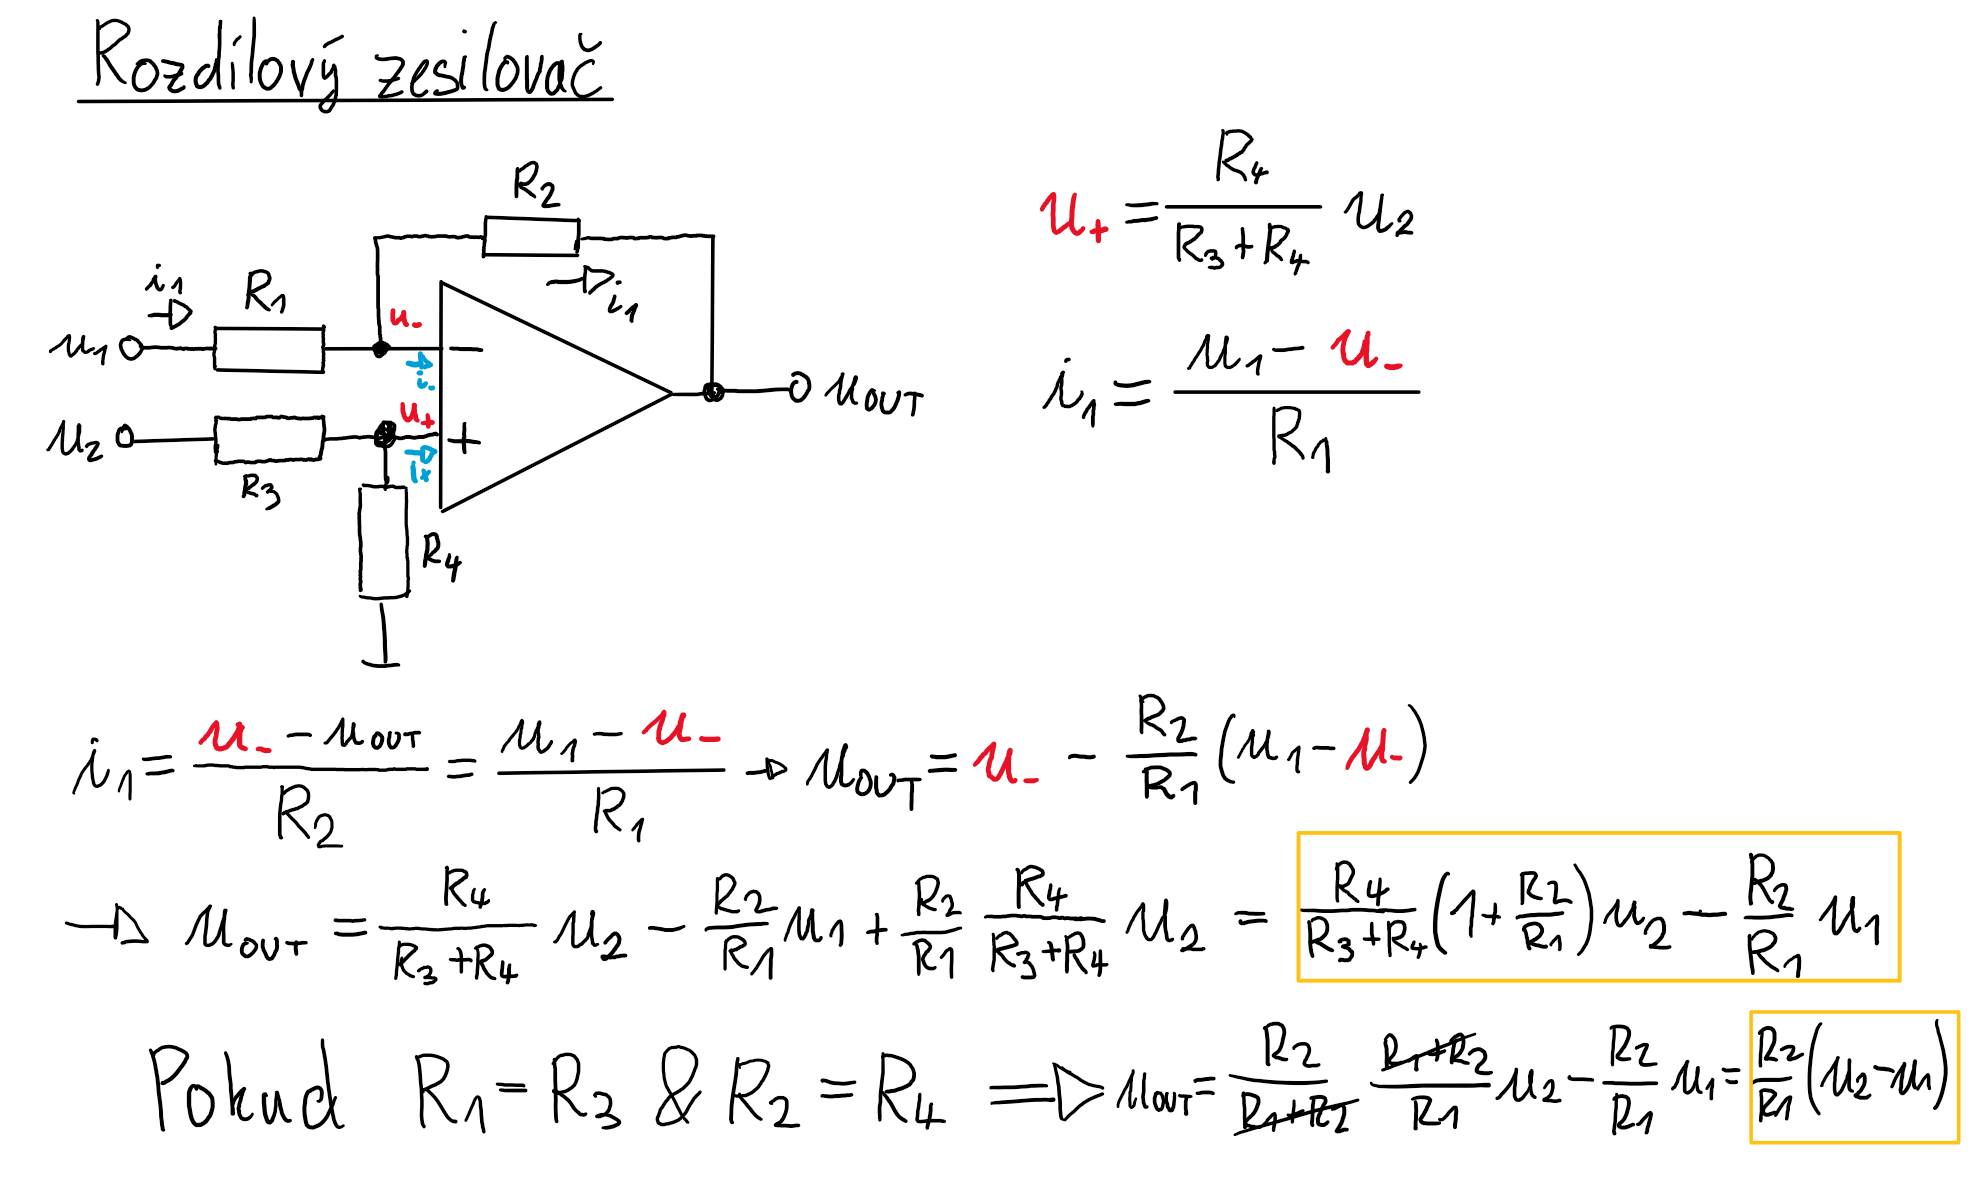 Rozdílový zesilovač
R2
i1
R1
i1
u-
u1
−
i-
uOUT
u+
u2
+
R3
R4
u+ = R4/(R3+R4) u2
i1 = (u1 − u-)/R1
i1 = (u- − uOUT)/R2 = (u1 − u-)/R1 → uOUT = u- − R2/R1 (u1 − u-)
→ uOUT = R4/(R3+R4) u2 − R2/R1 u1 + R2/R1 R4/(R3+R4) u2 = R4/(R3+R4) (1 + R2/R1) u2 − R2/R1 u1
Pokud R1 = R3 & R2 = R4 ⇒ uOUT = R2/(R1+R2) (R1+R2)/R1 u2 − R2/R1 u1 = R2/R1 (u2 − u1)